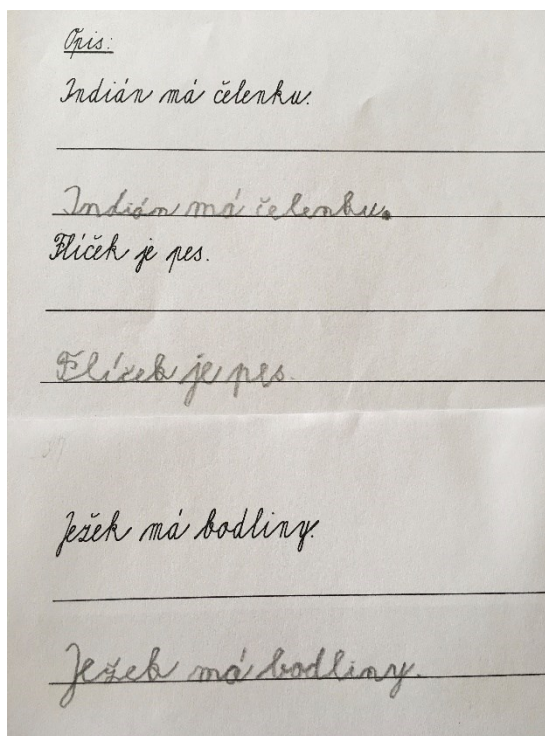 Opis:
Indián má čelenku.
Indián má čelenku.
Flíček je pes.
Flízek je pes.
Ježek má bodliny.
Ježek má bodliny.